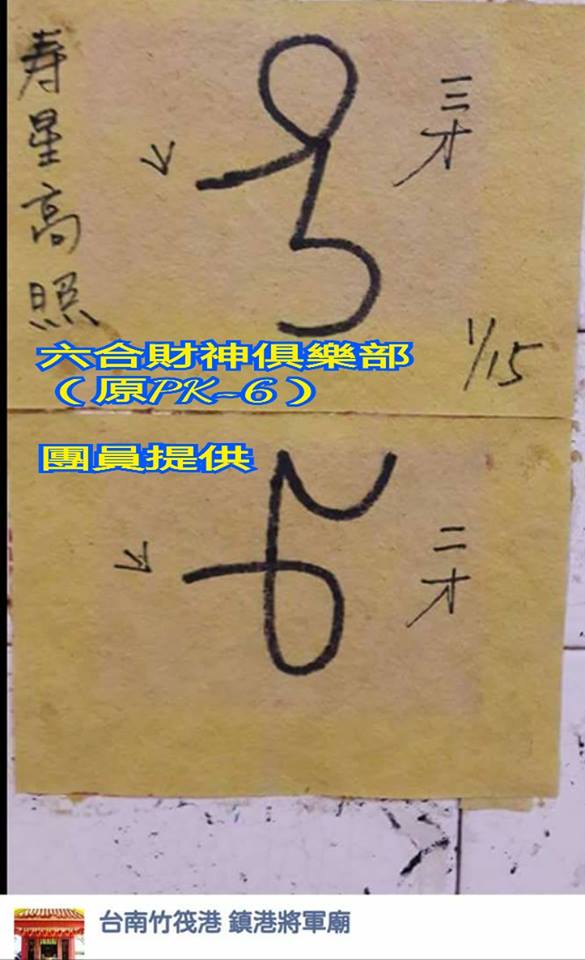 寿星高照
三才
1/15
六合財神俱樂部
（原PK-6）
團員提供
二才
台南竹筏港 鎮港將軍廟